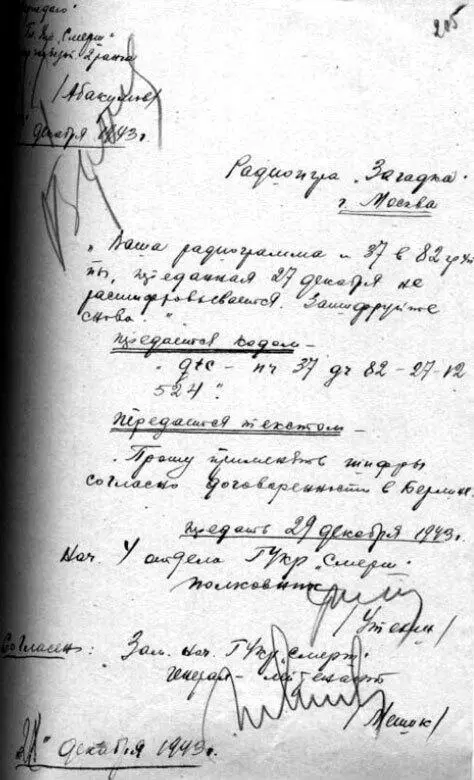 205
"Утверждаю"
Гл. Укр. "Смерш"
2 ранга
/Абакумов/
" декабря 1943г.
Радиоигра "Загадка"
г. Москва
"Ваша радиограмма н 37 в 82 груп-
пы, переданная 27 декабря не
расшифровывается. Зашифруйте
снова."
Передается кодом –
"gtc – нч 37 дч 82 – 27-12
524".
Передается текстом –
"Прошу применять шифры
согласно договоренности в Берлин
Передать 29 декабря 1943г.
Нач. V отдела ГУкр "Смерш"
полковник
/Утехин/
Согласен: Зам. нач. ГУкр "Смерш"
генерал-лейтенант
/Мешик/
декабря 1943г.